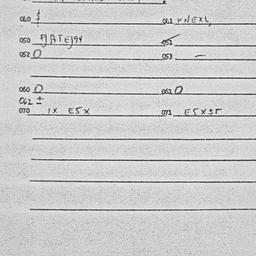 040 $ 041 KNEXL
050 GATEJ94 051
052 0 053 —
060 0 061 0
062 ±
070 IX E5X 071 E5X35